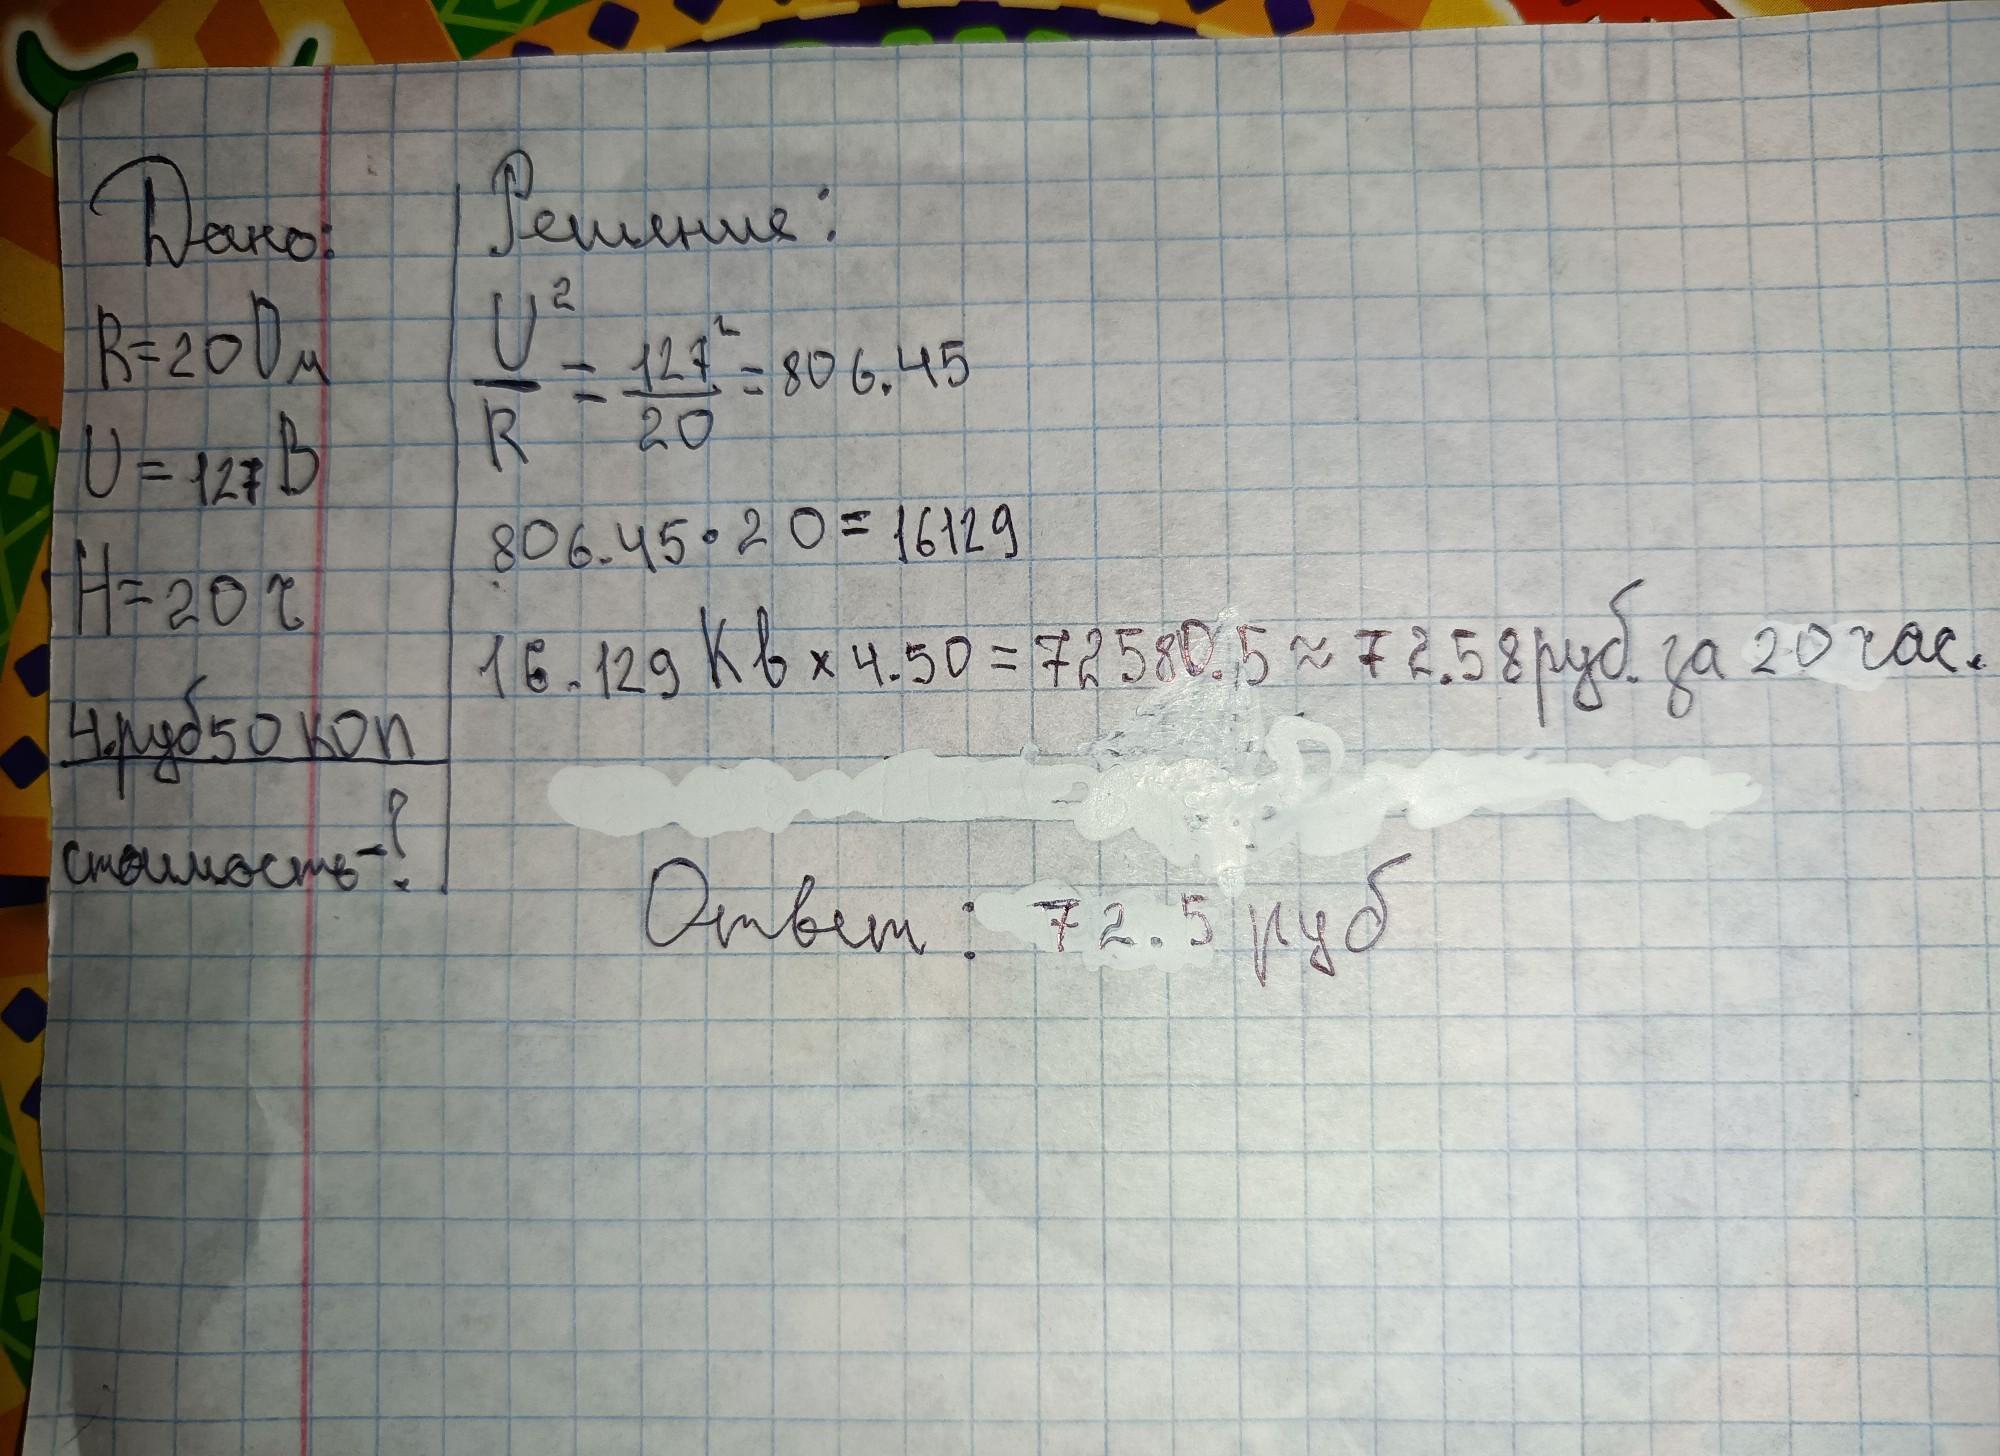 Дано:
R=20Ом
U=127В
H=20ч
4.руб50коп
стоимость-?
Решение:
U²/R = 127²/20 = 806.45
806.45·20=16129
16.129 Кв×4.50=72580.5≈72.58руб. за 20час.
Ответ: 72.5 руб